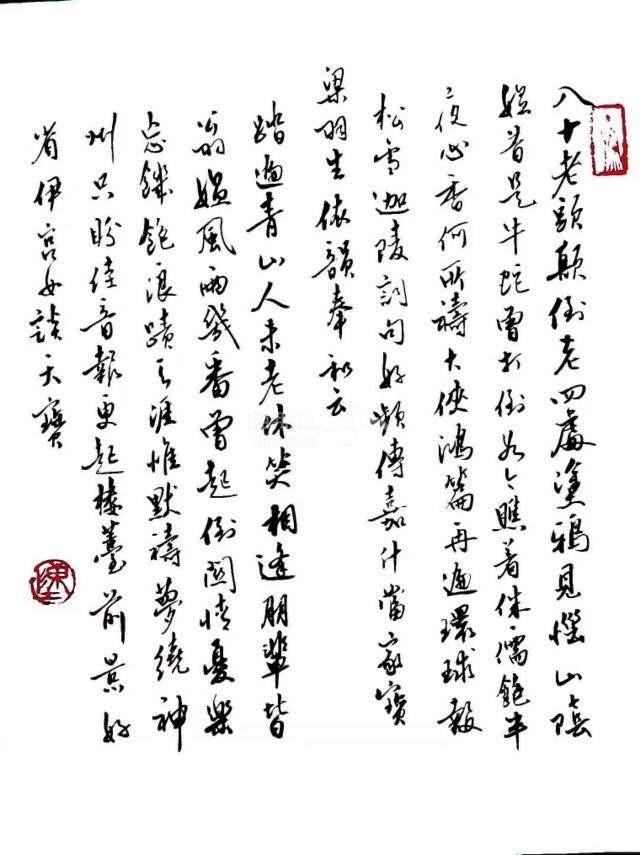 八十老頭顛倒老四處塗鴉見惱山陰
媪昔是牛蛇曾打倒如今瞧著侏儒飽半
夜心香何所禱大俠鴻篇再遍環球報
松雪迦陵詞句好頻傳嘉什當家寶
梁羽生依韻奉和云
踏遍青山人未老休笑相逢朋輩皆
翁媪風雨幾番曾起倒關情憂樂
忘饑飽浪蹟天涯惟默禱夢繞神
州只盼佳音報更起樓臺前景好
省伊宮女談天寶